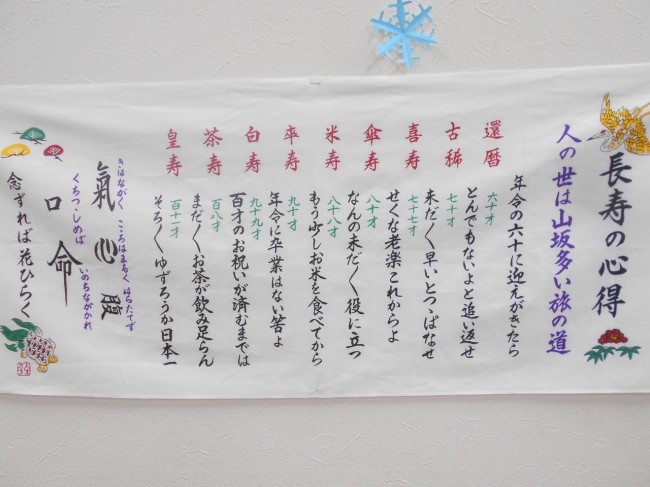 長寿の心得
人の世は山坂多い旅の道
年令の六十に迎えがきたら
還暦 六十才
とんでもないよと追い返せ
古稀 七十才
未だ〱早いとつっぱなせ
喜寿 七十七才
せくな老楽これからよ
傘寿 八十才
なんの未だ〱役に立つ
米寿 八十八才
もう少しお米を食べてから
卆寿 九十才
年令に卒業はない筈よ
白寿 九十九才
百才のお祝いが済むまでは
茶寿 百八才
まだ〱お茶が飲み足らん
皇寿 百十一才
そろ〱ゆずろうか日本一
きはながく こころはまるく はらたてず
氣 心 腹
くちつゝしめば いのちながかれ
口 命
念ずれば花ひらく